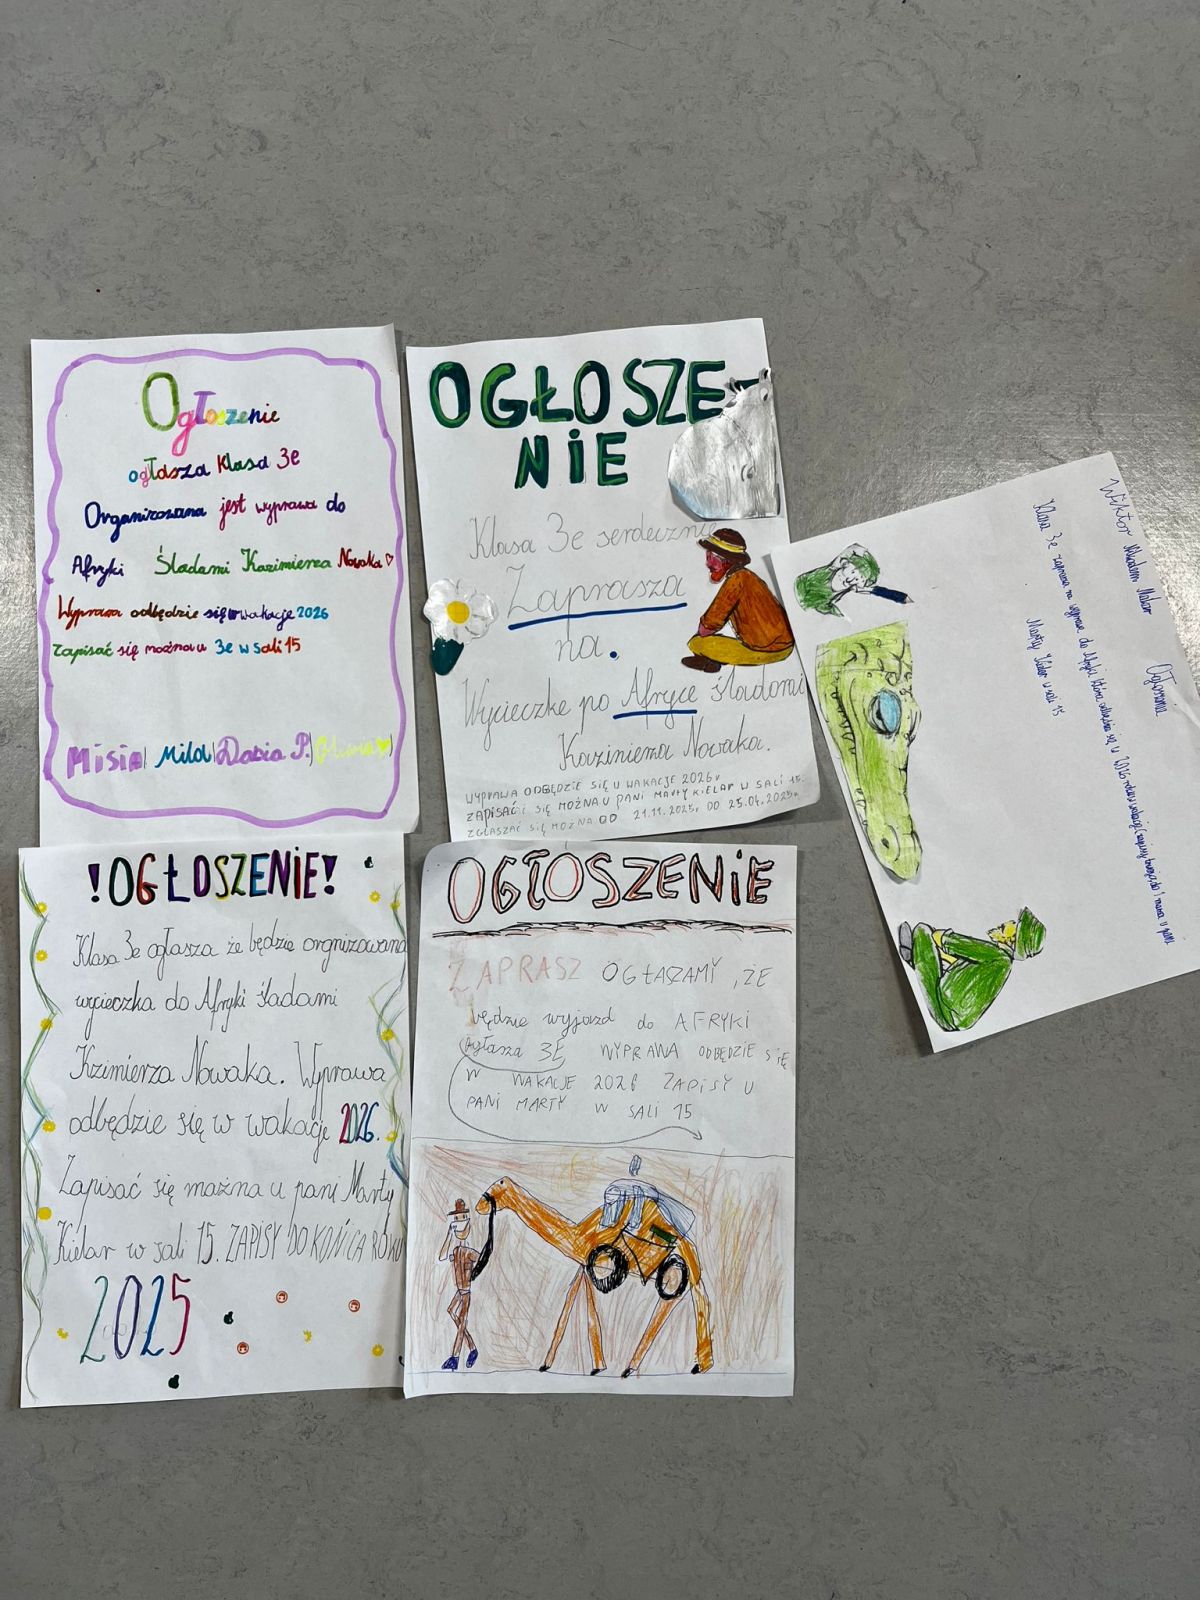 Ogłoszenie
ogłasza Klasa 3e
Organizowana jest wyprawa do
Afryki Śladami Kazimierza Nowaka
Wyprawa odbędzie się w wakacje 2026
Zapisać się można u 3e w sali 15
Misia Mila Dasia P.
OGŁOSZE-
NIE
Klasa 3e serdecznie
Zaprasza
na.
Wycieczke po Afryce śladami
Kazimierza Nowaka.
WYPRAWA ODBĘDZIE SIĘ U WAKACJE 2026r
ZAPISAĆ SIĘ MOŻNA U PANI MARTY KIELAR W SALI 15.
ZGŁASZAĆ SIĘ MOŻNA OD 21.11.2025r DO 25.04.2025r
Wiktor
Klasa 3e zaprasza na do Afryki która odbędzie się w 2026
Marty Kielar w sali 15
!OGŁOSZENIE!
Klasa 3e ogłasza że będzie orgnizowana
wycieczka do Afryki śladami
Kzimierza Nowaka. Wyprawa
odbędzie się w wakacje 2026.
Zapisać się można u pani Marty
Kielar w sali 15. ZAPISY DO KOŃCA ROKU
2025
OGŁOSZENIE
ZAPRASZ OGŁASZAMY, ŻE
będzie wyjazd do AFRYKI
ogłasza 3E WYPRAWA ODBĘDZIE SIĘ
W WAKACJE 2026 ZAPISY U
PANI MARTY W SALI 15